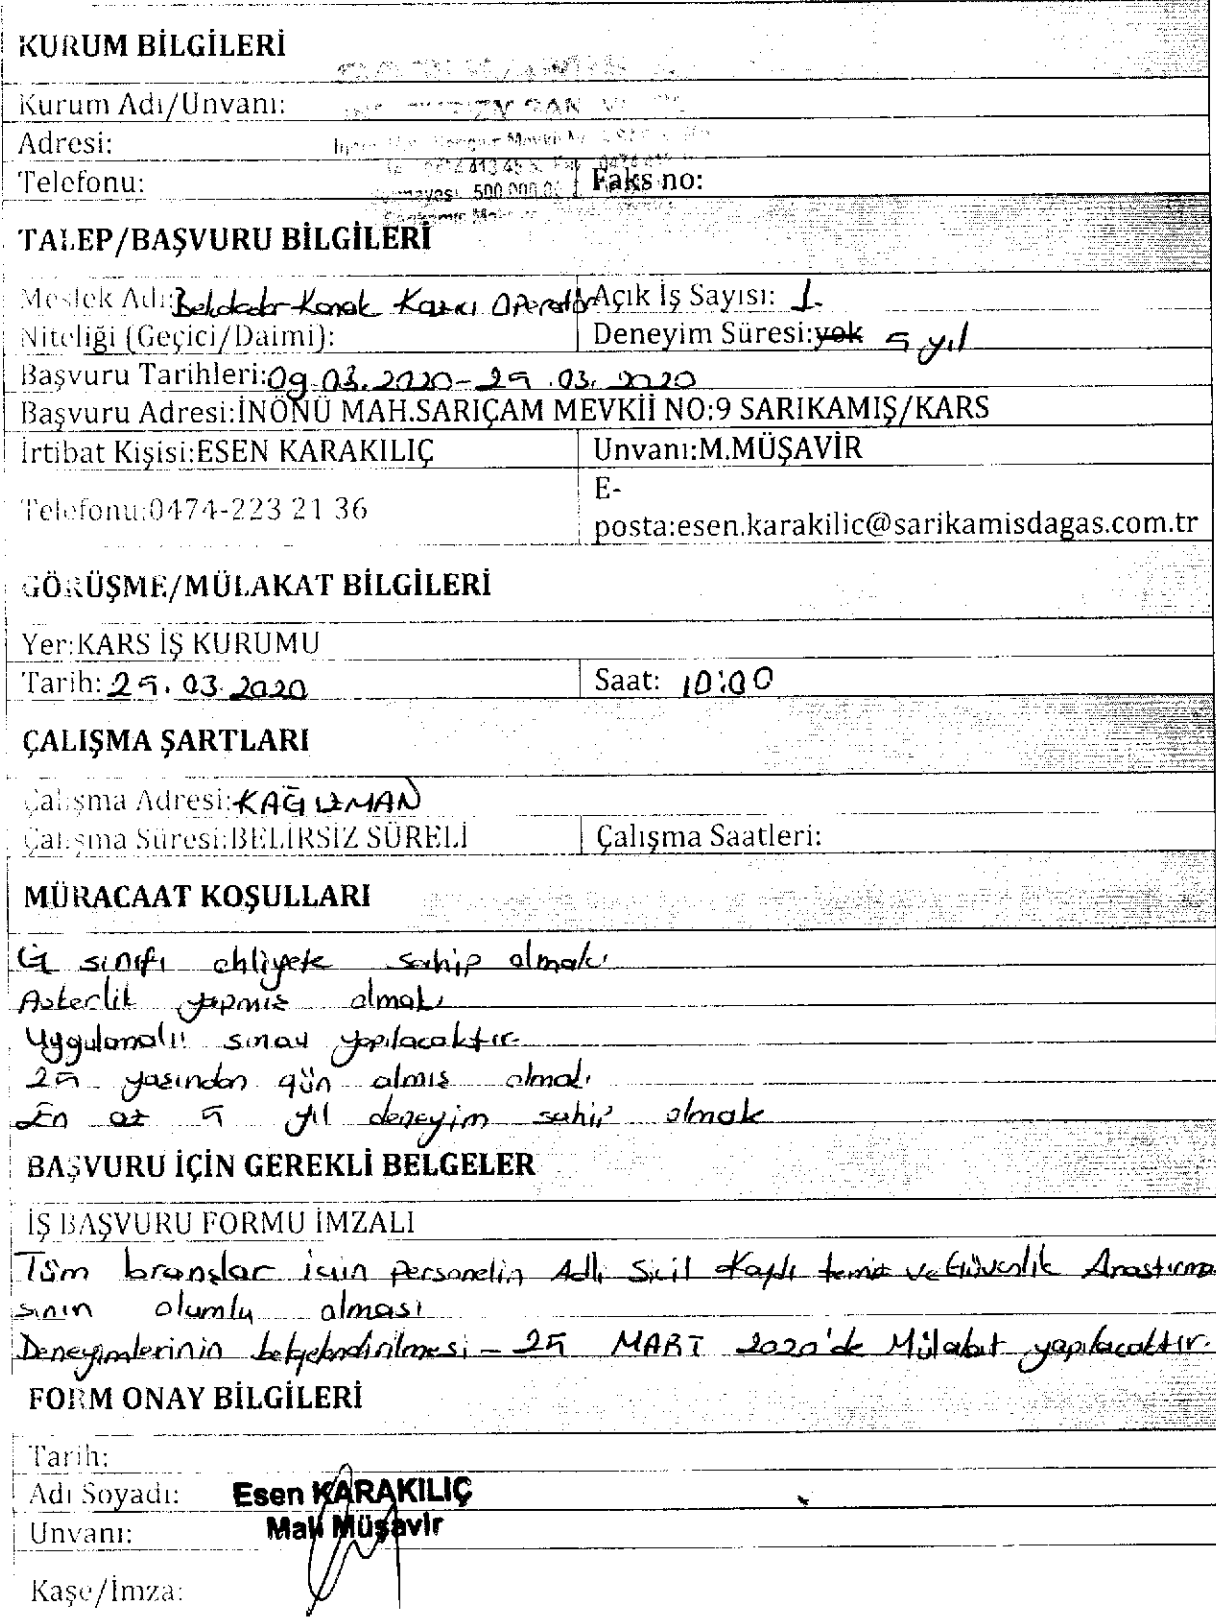 KURUM BİLGİLERİ
Kurum Adı/Unvanı:
Adresi:
Telefonu: 500.000.00 Faks no:
TALEP/BAŞVURU BİLGİLERİ
Meslek Adı: Kanal Kazıcı Operatör Açık İş Sayısı: 1.
Niteliği (Geçici/Daimi): Deneyim Süresi:yok 5 yıl
Başvuru Tarihleri:09.03.2020-25.03.2020
Başvuru Adresi:İNÖNÜ MAH.SARIÇAM MEVKİİ NO:9 SARIKAMIŞ/KARS
İrtibat Kişisi:ESEN KARAKILIÇ Unvanı:M.MÜŞAVİR
Telefonu:0474-223 21 36 E-
posta:esen.karakilic@sarikamisdagas.com.tr
GÖRÜŞME/MÜLAKAT BİLGİLERİ
Yer:KARS İŞ KURUMU
Tarih: 25.03.2020 Saat: 10:00
ÇALIŞMA ŞARTLARI
Çalışma Adresi:KAĞIZMAN
Çalışma Süresi:BELİRSİZ SÜRELİ Çalışma Saatleri:
MÜRACAAT KOŞULLARI
G sınıfı ehliyete sahip olmak
Askerlik yapmış olmak
Uygulamalı sınav yapılacaktır.
25 yaşından gün almış olmak
En az 5 yıl deneyim sahip olmak
BAŞVURU İÇİN GEREKLİ BELGELER
İŞ BAŞVURU FORMU İMZALI
Tüm branşlar için personelin Adli Sicil Kaydı temiz ve Güvenlik Araştırma
sının olumlu olması
Deneyimlerinin belgelendirilmesi - 25 MART 2020'de Mülakat yapılacaktır.
FORM ONAY BİLGİLERİ
Tarih:
Adı Soyadı: Esen KARAKILIÇ
Unvanı: Mali Müşavir
Kaşe/İmza: